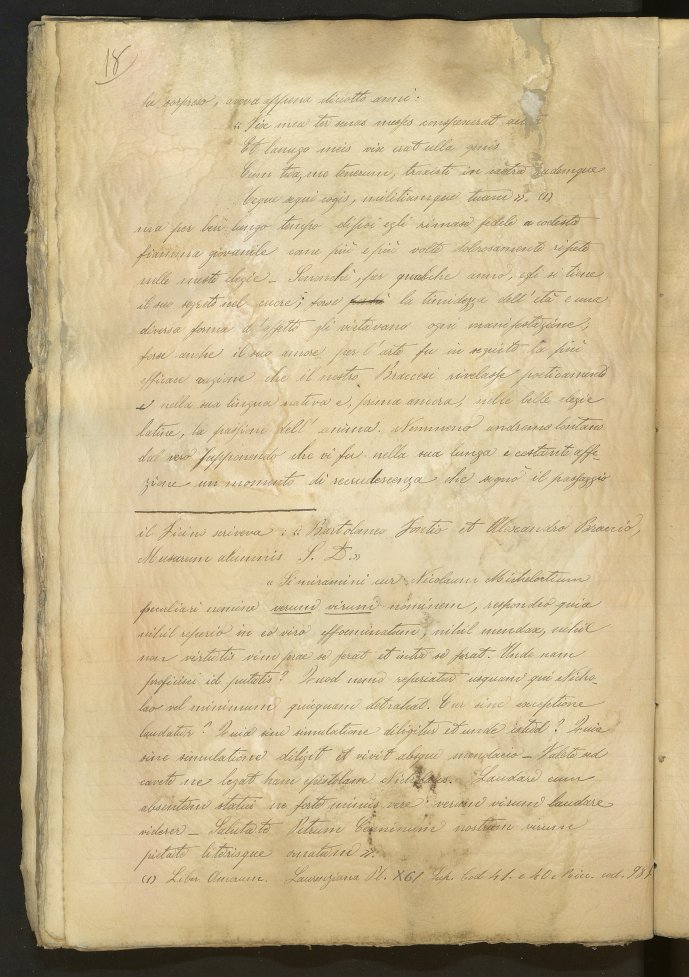 18
lo sorprese, aveva appena diciotto anni:
" Vix mea ter senas messes conspexerat aetas
Et lanugo meis vix erat ulla genis
Cum tua, me tenerum, traxisti in castra
Teque sequi cogis, militiamque tuam ". (1)
ma per ben lungo tempo dipoi egli rimase fedele a codesta
fiamma giovanile come più e più volte dolorosamente ripete
nelle meste elegie – Sennonchè, per qualche anno, egli si tiene
il suo segreto nel cuore; forse la timidezza dell'età e una
diversa forma d'affetto gli vietavano ogni manifestazione,
forse anche il suo amore per l'arte fu in seguito la più
efficace ragione che il nostro Braccesi rivelasse poeticamente
e nella sua lingua nativa e, prima ancora, nelle belle elegie
latine, la passione dell'anima. Nemmeno andremo lontano
dal vero supponendo che vi fu nella sua lunga e costante affe-
zione un momento di recrudescenza che segnò il passaggio
il Ficino scriveva: " Bartolomeo Fontio et Alexandro Braccio,
Musarum alumnis S. D. "
" Si miramini cur Nicolaum Michelottium
peculiari nomine verum virum nominem, respondeo quia
nihil reperio in eo viro effoeminatum, nihil mendax, nihil
non virtutis vim prae se ferat et intra se ferat. Unde nam
proficisci id putatis? Quod nemo reperiatur usquam qui Nicho-
lao vel minimum quicquam detrahat. Cur sine exceptione
laudatur? Quia sine simulatione diligitur et unde istud? Quia
sine simulatione diligit et vivit absque mendacio – Valete sed
cavete ne legat hanc epistolam Nicholaus. Laudare eum
absentem statui ne forte minus vere verum virum laudare
viderer – Salutate Petrum nostrum virum
pietate literisque ornatum ".
(1) Liber Amorum. Laurenziana Pl. XCI Sup. Cod 41. e 40 e Ricc. cod. 981